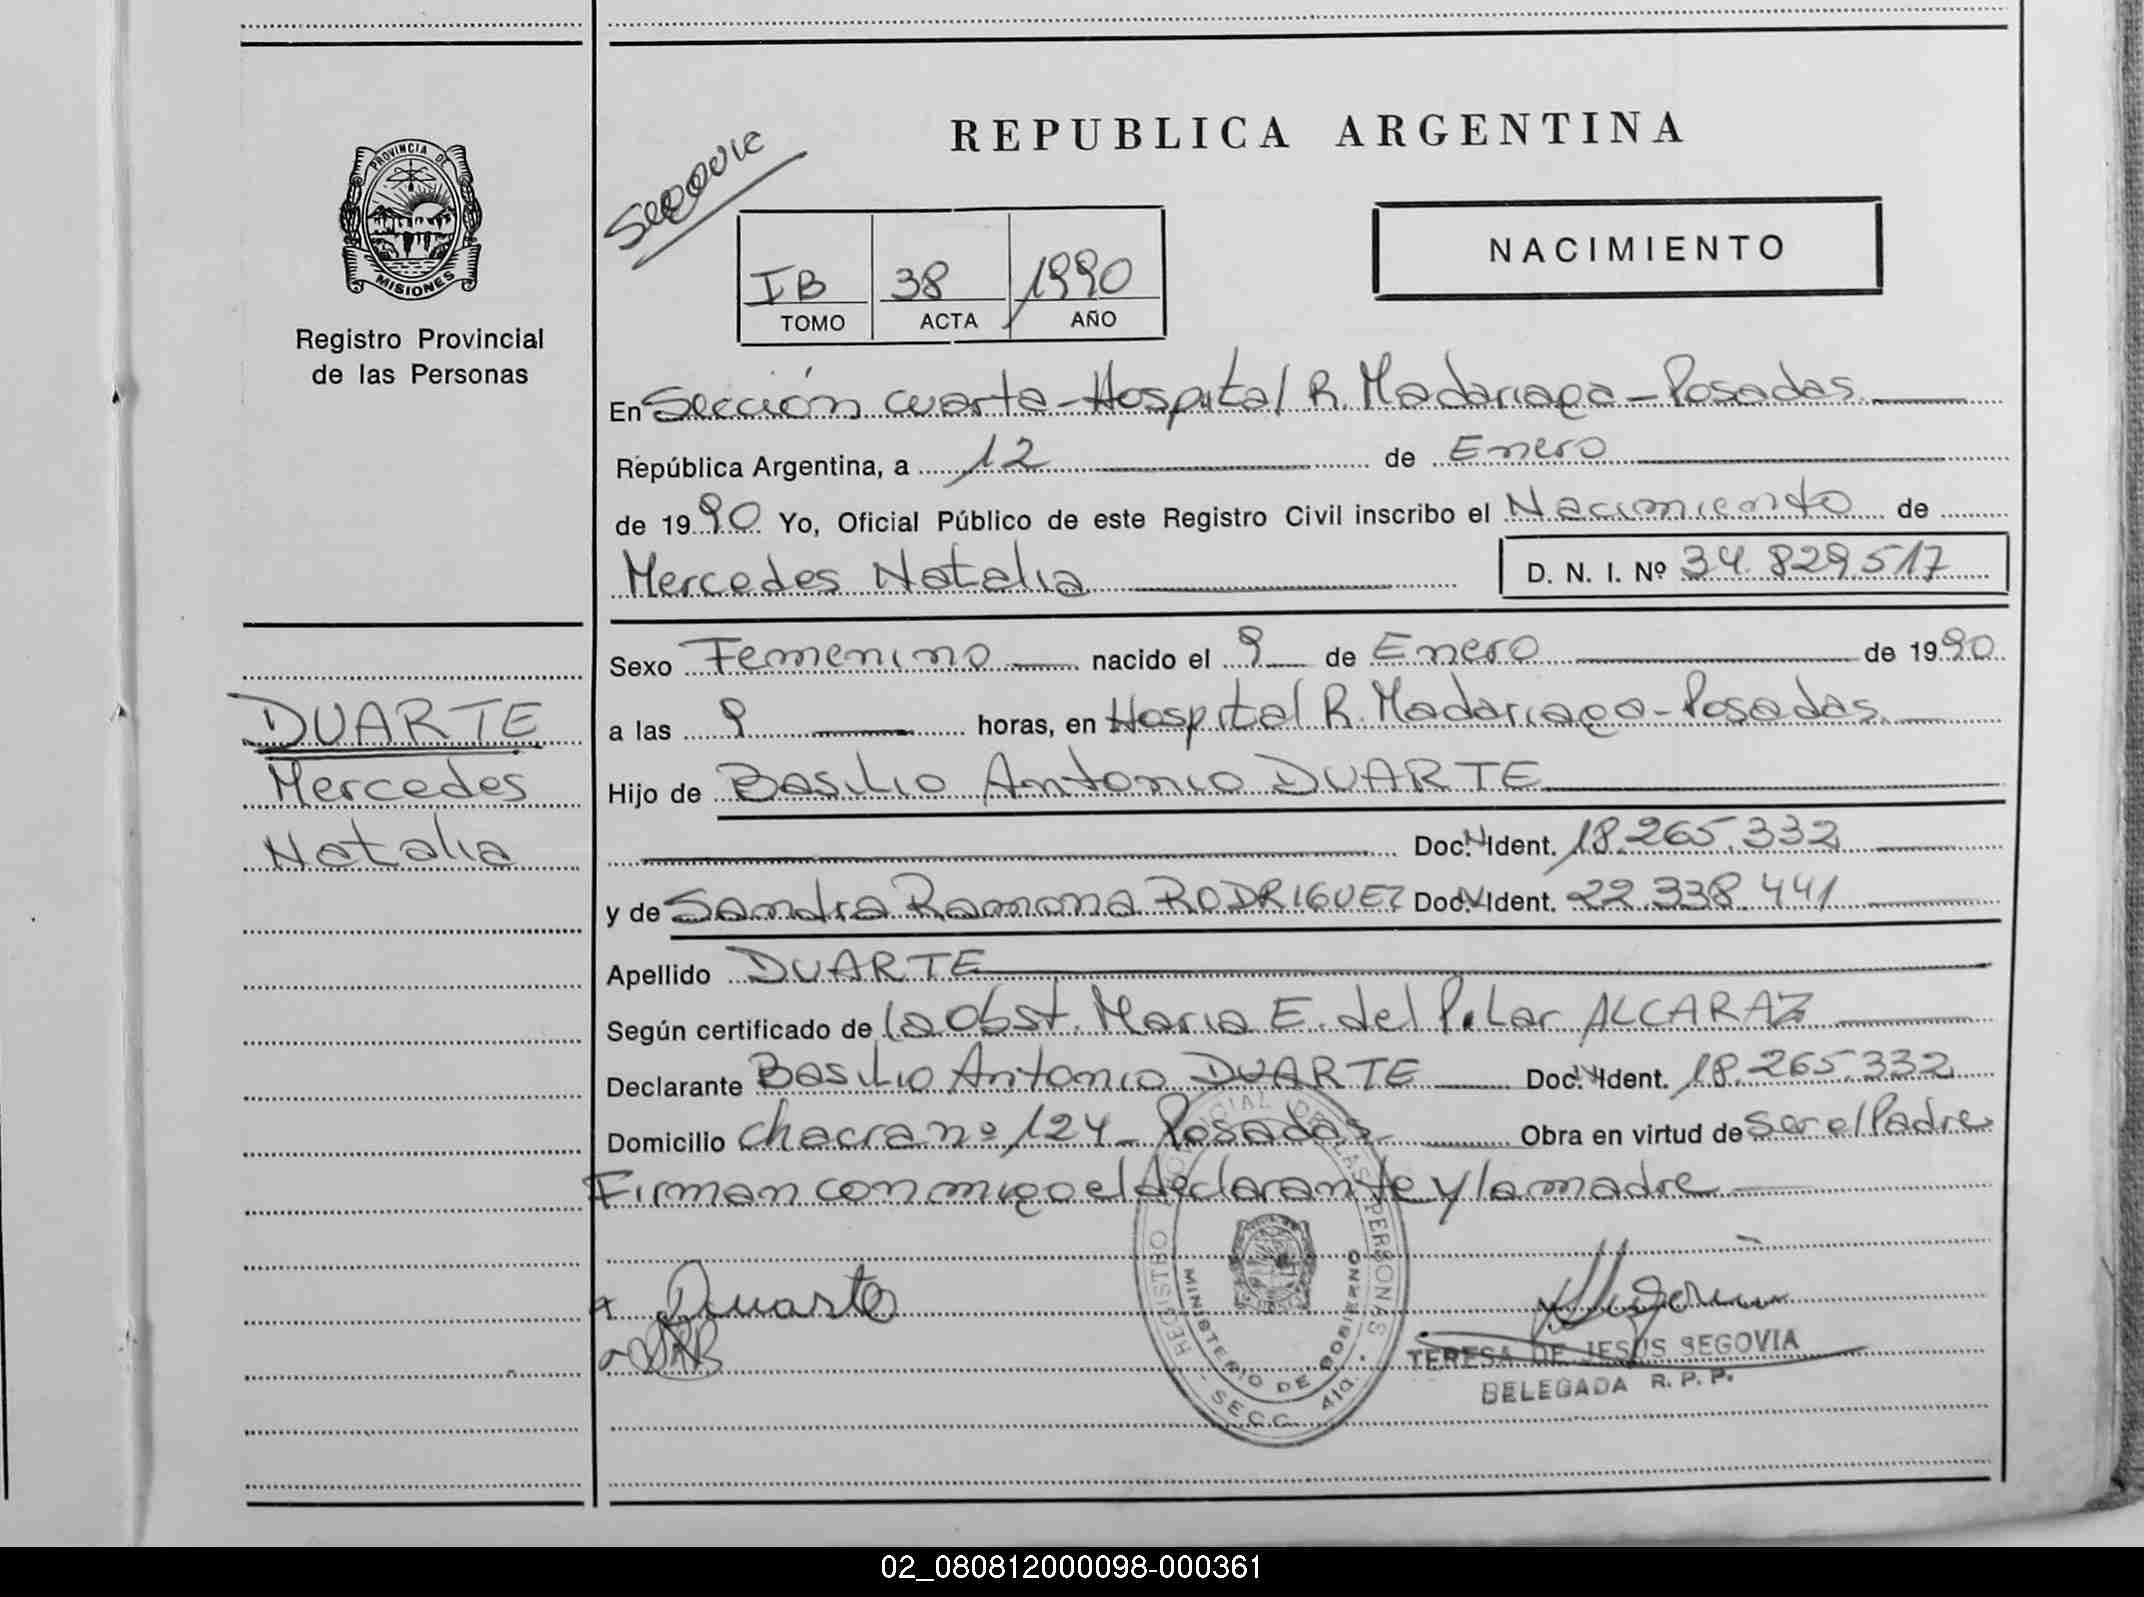 REPUBLICA ARGENTINA
NACIMIENTO
PROVINCIA DE
MISIONES
Registro Provincial
de las Personas
IB 38 1990
TOMO ACTA AÑO
En Sección cuarta - Hospital R. Madariaga - Posadas
República Argentina, a 12 de Enero
de 1990 Yo, Oficial Público de este Registro Civil inscribo el Nacimiento de
Mercedes Natalia D. N. I. Nº 34.829.517
Sexo Femenino nacido el 9 de Enero de 1990
DUARTE
Mercedes
Natalia
a las 9 horas, en Hospital R. Madariaga - Posadas
Hijo de Basilio Antonio DUARTE
Doc. N Ident. 18.265.332
y de Sandra Ramona RODRIGUEZ Doc. N Ident. 22.338.441
Apellido DUARTE
Según certificado de la Obst. Maria E. del Pilar ALCARAZ
Declarante Basilio Antonio DUARTE Doc. N Ident. 18.265.332
Domicilio chacra nº 124 - Posadas Obra en virtud de ser el Padre
Firman conmigo el declarante y la madre
Duarte
SRR
REGISTRO PROVINCIAL DE LAS PERSONAS
MINISTERIO DE GOBIERNO
SECC. 4ta.
TERESA DE JESUS SEGOVIA
DELEGADA R. P. P.
02_080812000098-000361